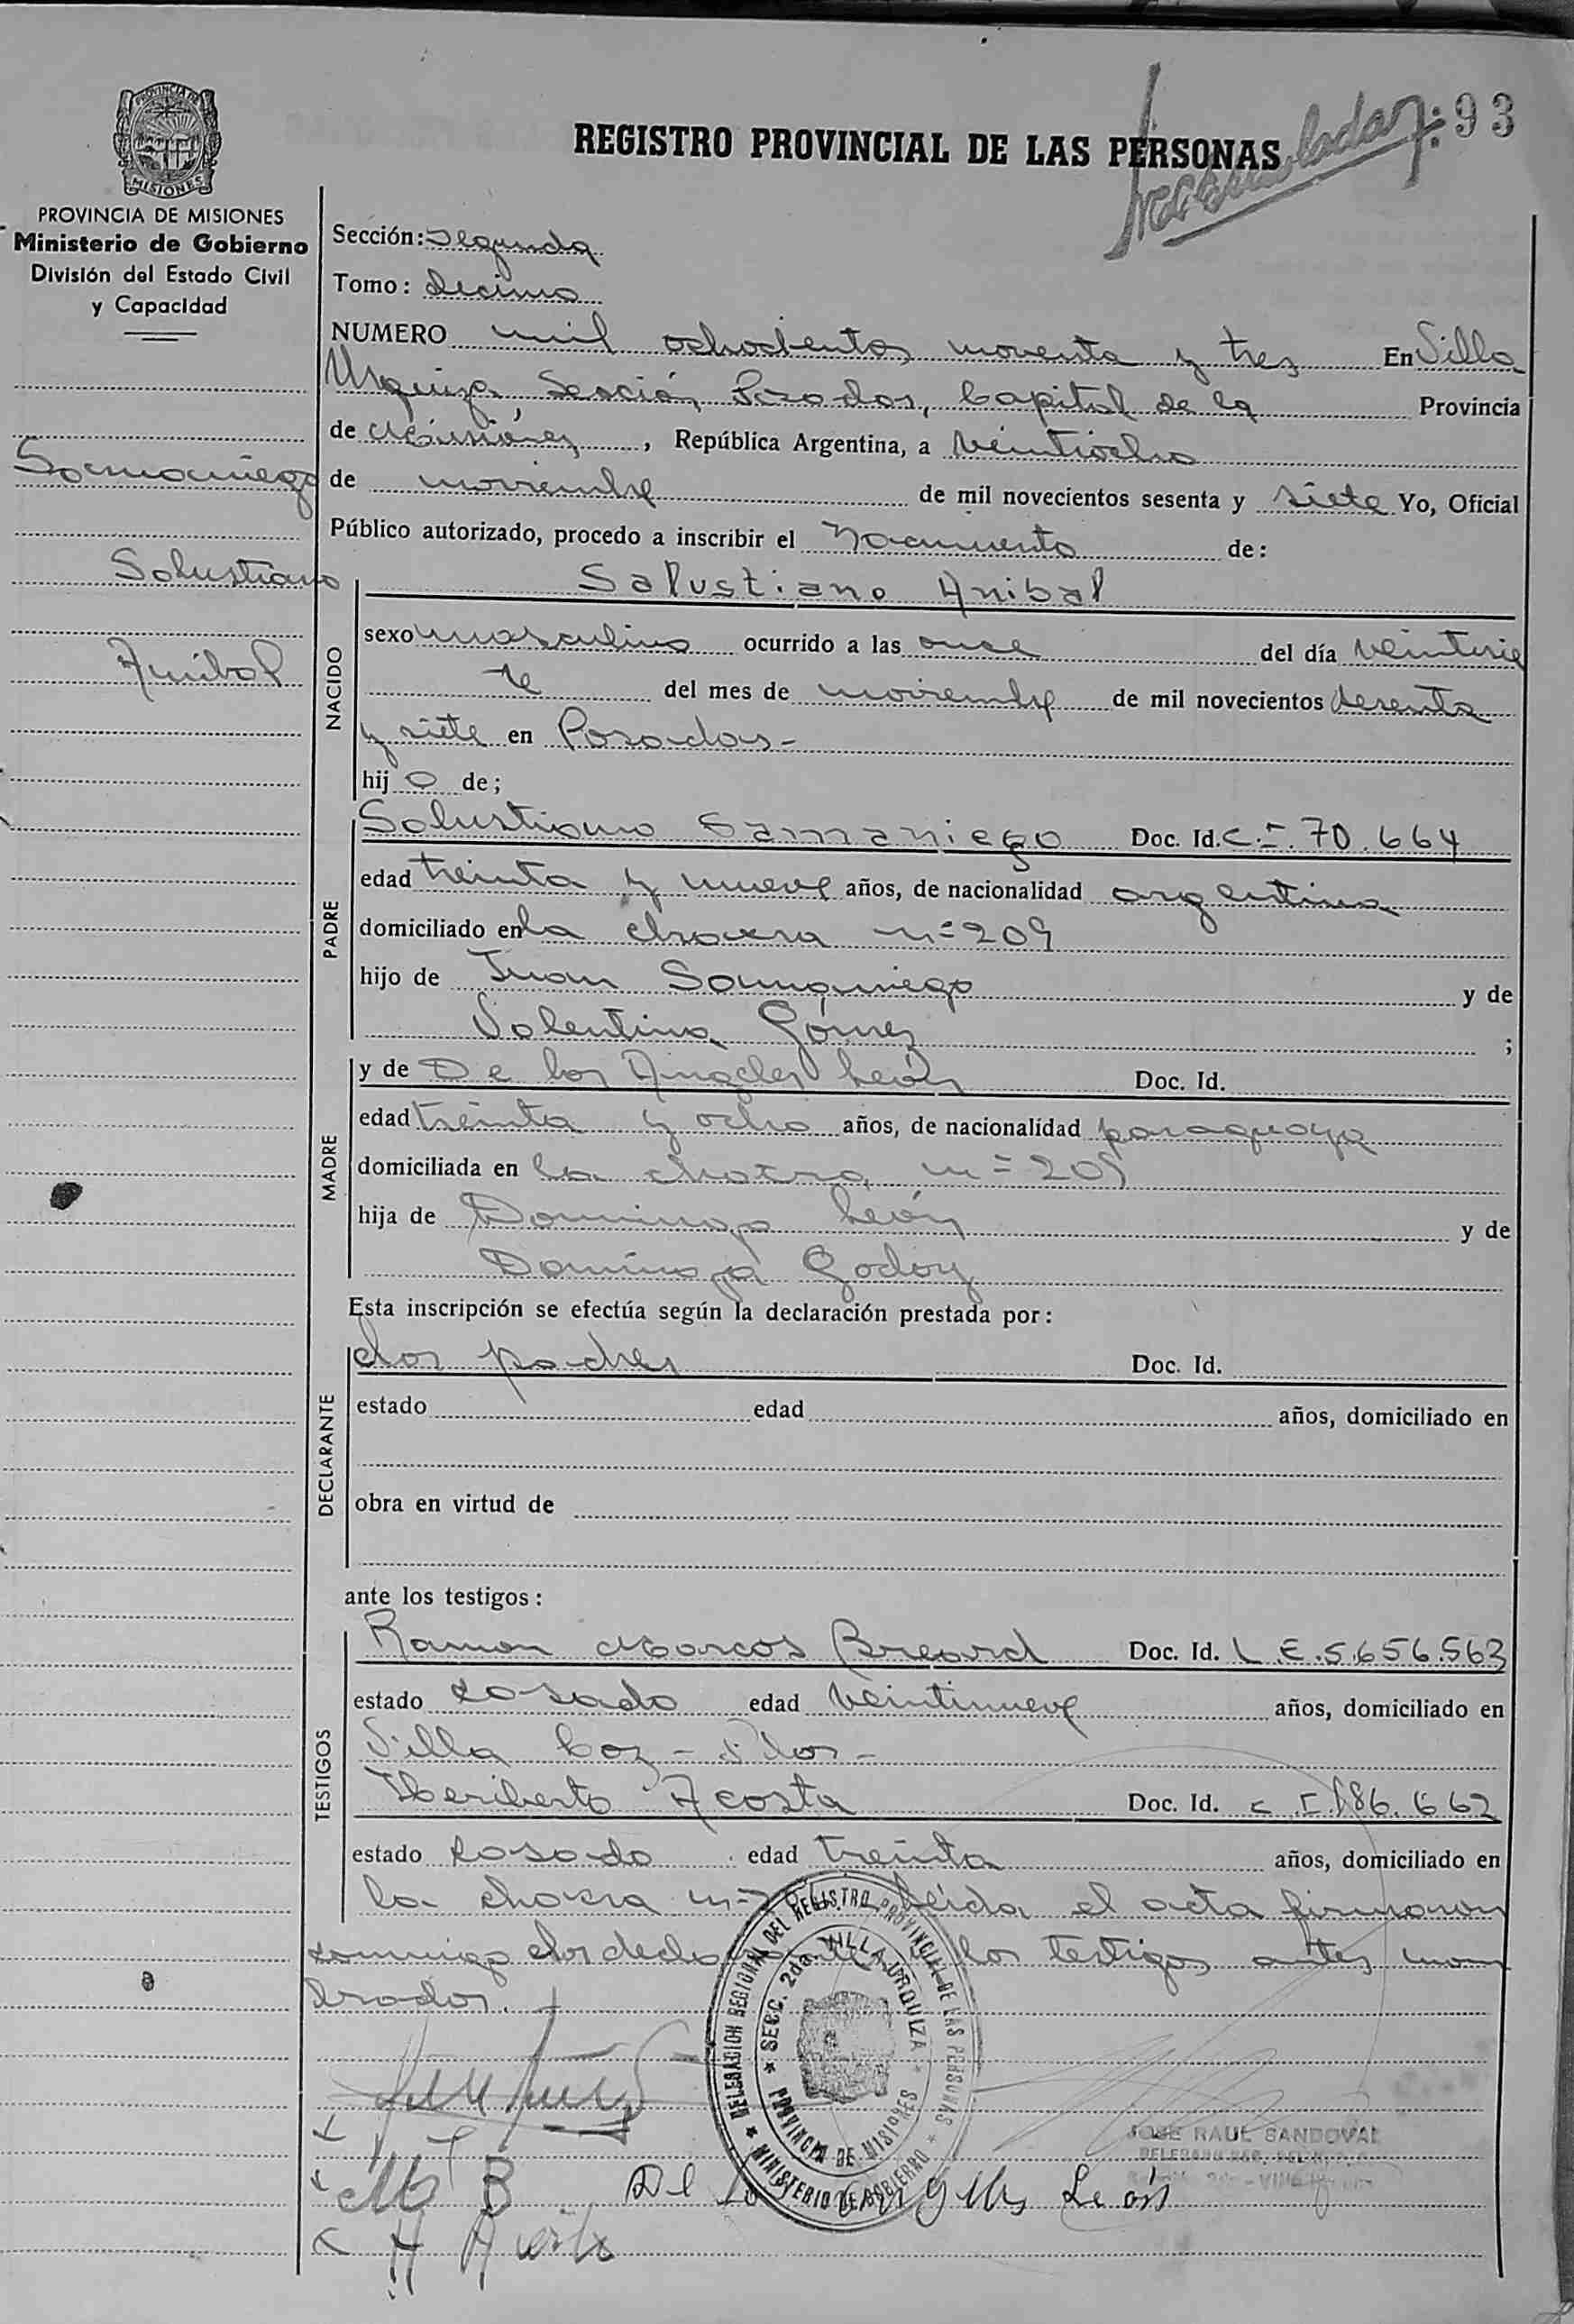 REGISTRO PROVINCIAL DE LAS PERSONAS
93
PROVINCIA DE MISIONES
PROVINCIA DE MISIONES
Ministerio de Gobierno
División del Estado Civil
y Capacidad
Samaniego
Salustiano
Anibal
Sección: Segunda
Tomo: Decimo
NUMERO mil ochocientos noventa y tres En Villa
Urquiza, Sección Posadas, Capital de la Provincia
de Misiones, República Argentina, a veintiocho
de noviembre de mil novecientos sesenta y siete Yo, Oficial
Público autorizado, procedo a inscribir el Nacimiento de:
NACIDO
Salustiano Anibal
sexo masculino ocurrido a las once del día veintisie
te del mes de noviembre de mil novecientos sesenta
y siete en Posadas-
hijo de;
PADRE
Salustiano Samaniego Doc. Id. C.I. 70.664
edad treinta y nueve años, de nacionalidad argentina
domiciliado en la chacra nº 209
hijo de Juan Samaniego y de
Valentina Gómez ;
MADRE
y de De los Angeles León Doc. Id.
edad treinta y ocho años, de nacionalidad paraguaya
domiciliada en la chacra nº 209
hija de Domingo León y de
Dominga Godoy
Esta inscripción se efectúa según la declaración prestada por:
DECLARANTE
Los padres Doc. Id.
estado edad años, domiciliado en
obra en virtud de
ante los testigos:
TESTIGOS
Ramon Marcos Breard Doc. Id. L.E. 5.656.563
estado casado edad veintinueve años, domiciliado en
Villa
Heriberto Acosta Doc. Id. C.I. 186.662
estado casado edad treinta años, domiciliado en
la chacra Leida el acta firmaron
conmigo los testigos antes nom
brados.
DELEGACION REGIONAL DEL REGISTRO PROVINCIAL DE LAS PERSONAS
SECC. 2da. VILLA URQUIZA
PROVINCIA DE MISIONES
MINISTERIO DE GOBIERNO
JOSE RAUL SANDOVAL
M B
De los Angeles León
H A